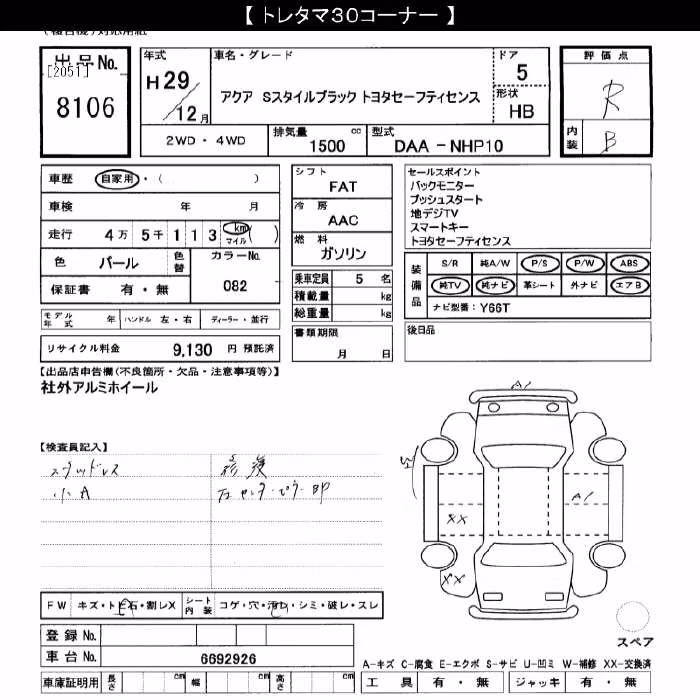 【 トレタマ30コーナー 】
出品No.
[2051]
8106
年式
H29
12月
車名・グレード
アクア Sスタイルブラック トヨタセーフティセンス
ドア
5
形状
HB
2WD ・ 4WD
排気量 cc
1500
型式
DAA - NHP10
評価点
R
内装
B
車歴 自家用・( )
車検 年 月
走行 4万 5千 1 1 3 km マイル ( )
色 パール 色替
カラーNo.
082
保証書 有・無
モデル年式 年 ハンドル 左・右 ディーラー・並行
リサイクル料金 9,130 円 預託済
シフト
FAT
冷房
AAC
燃料
ガソリン
乗車定員 5 名
積載量 kg
総重量 kg
書類期限
月 日
セールスポイント
バックモニター
プッシュスタート
地デジTV
スマートキー
トヨタセーフティセンス
装備品
S/R 純A/W P/S P/W ABS
純TV 純ナビ 革シート 外ナビ エアB
ナビ型番: Y66T
後日品
【出品店申告欄(不良箇所・欠品・注意事項等)】
社外アルミホイール
【検査員記入】
スタッドレス
小A
修復
右センターピラー
A1
A1
XX
XX
FW キズ・トビ石・割レX
シート内装 コゲ・穴・汚レ・シミ・破レ・スレ
登録 No.
車台 No. 6692926
車庫証明用 長さ cm 幅 cm 高さ cm
スペア
A-キズ C-腐食 E-エクボ S-サビ U-凹ミ W-補修 XX-交換済
工具 有・無 ジャッキ 有・無